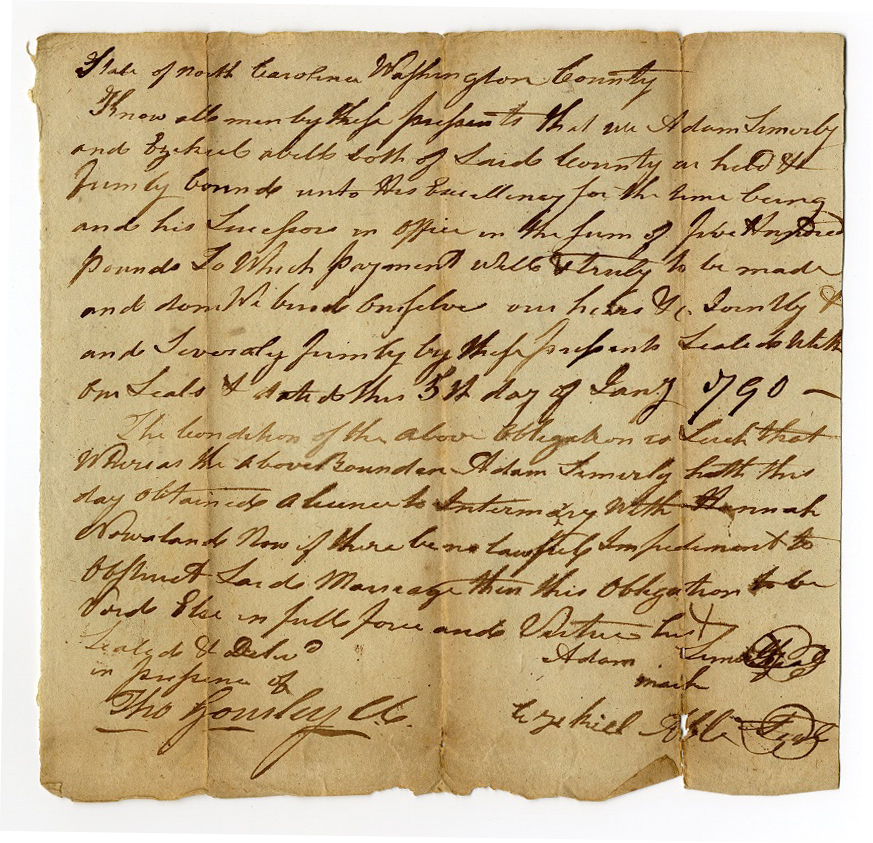 State of North Carolina Washington County
Know all men by these presents that we Adam Simerly
and Ezekiel Abell both of Said County are held &
firmly bound unto His Excellency for the time being
and his Sucessors in Office in the Sum of five Hundred
pounds To Which payment will & truly to be made
and don We bind Ourselve our heirs &c. Jointly &
and Severaly firmly by these presents Sealed With
Our Seals & dated this 5th day of Jany 1790
The Condition of the above Obligation is Such that
Whereas the above Bounden Adam Simerly hath this
day obtained a licence to Intermary With Hannah
Nowland Now if there be no lawfull Impediment to
Obstruct Said Marriage then this Obligation to be
Void Else in full force and Virtue his X
Sealed & Deliv'd Adam Simerly Seal
in presence of mark
Tho Gourley Ezekiell Able Seal